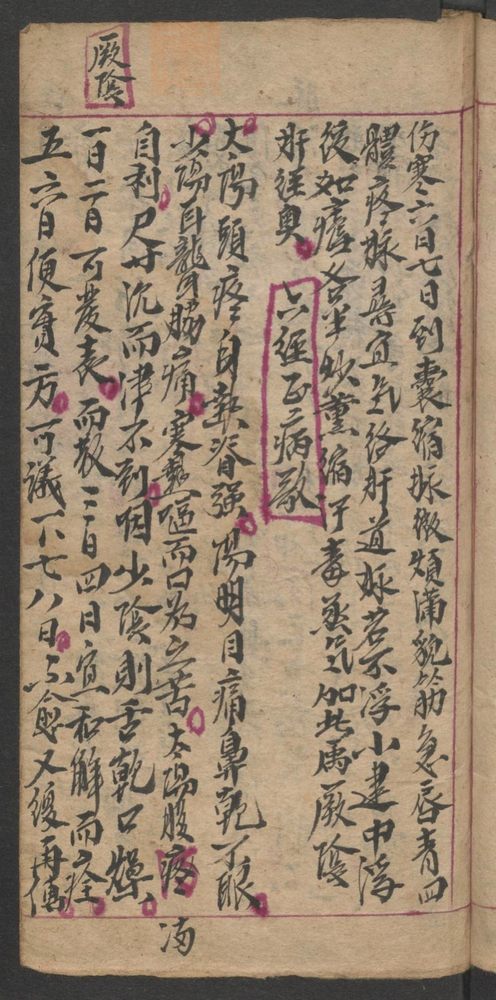 厥陰
伤寒六日七日到囊縮脉微煩滿貌筋急唇青四
體疼脉尋宜氣絡肝道脉若不浮小建中湯
後如瘧各半炒薰縮汗毒蒸氣如此為厥陰
肝經奥
六經正病歌
太陽頭疼自熱脊強陽明目痛鼻乹不眠
少陽耳聾脇痛寒熱嘔而口為之苦太陽腹疼滿
自利尺寸沉而津不到咽少陰則舌乾口燥
一日二日可發表而散三日四日宜和解而痊
五六日便實方可議下七八日不愈又復再傳